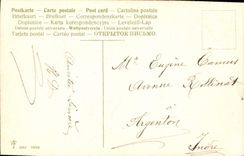 Postkarte – Carte postale – Post card – Cartolina postale
Briefkaart – Brefkort – Correspondenzkarte – Dopisnice
Dopisnica – Karta korespondencyjna – Levelező-Lap
Union postale universelle – Weltpostverein – Dopisnica
Tarjeta postal – ОТКРЫТОЕ ПИСЬМО.
M. Eugène Camus
Avenue Rollinat
à
Argenton
Indre